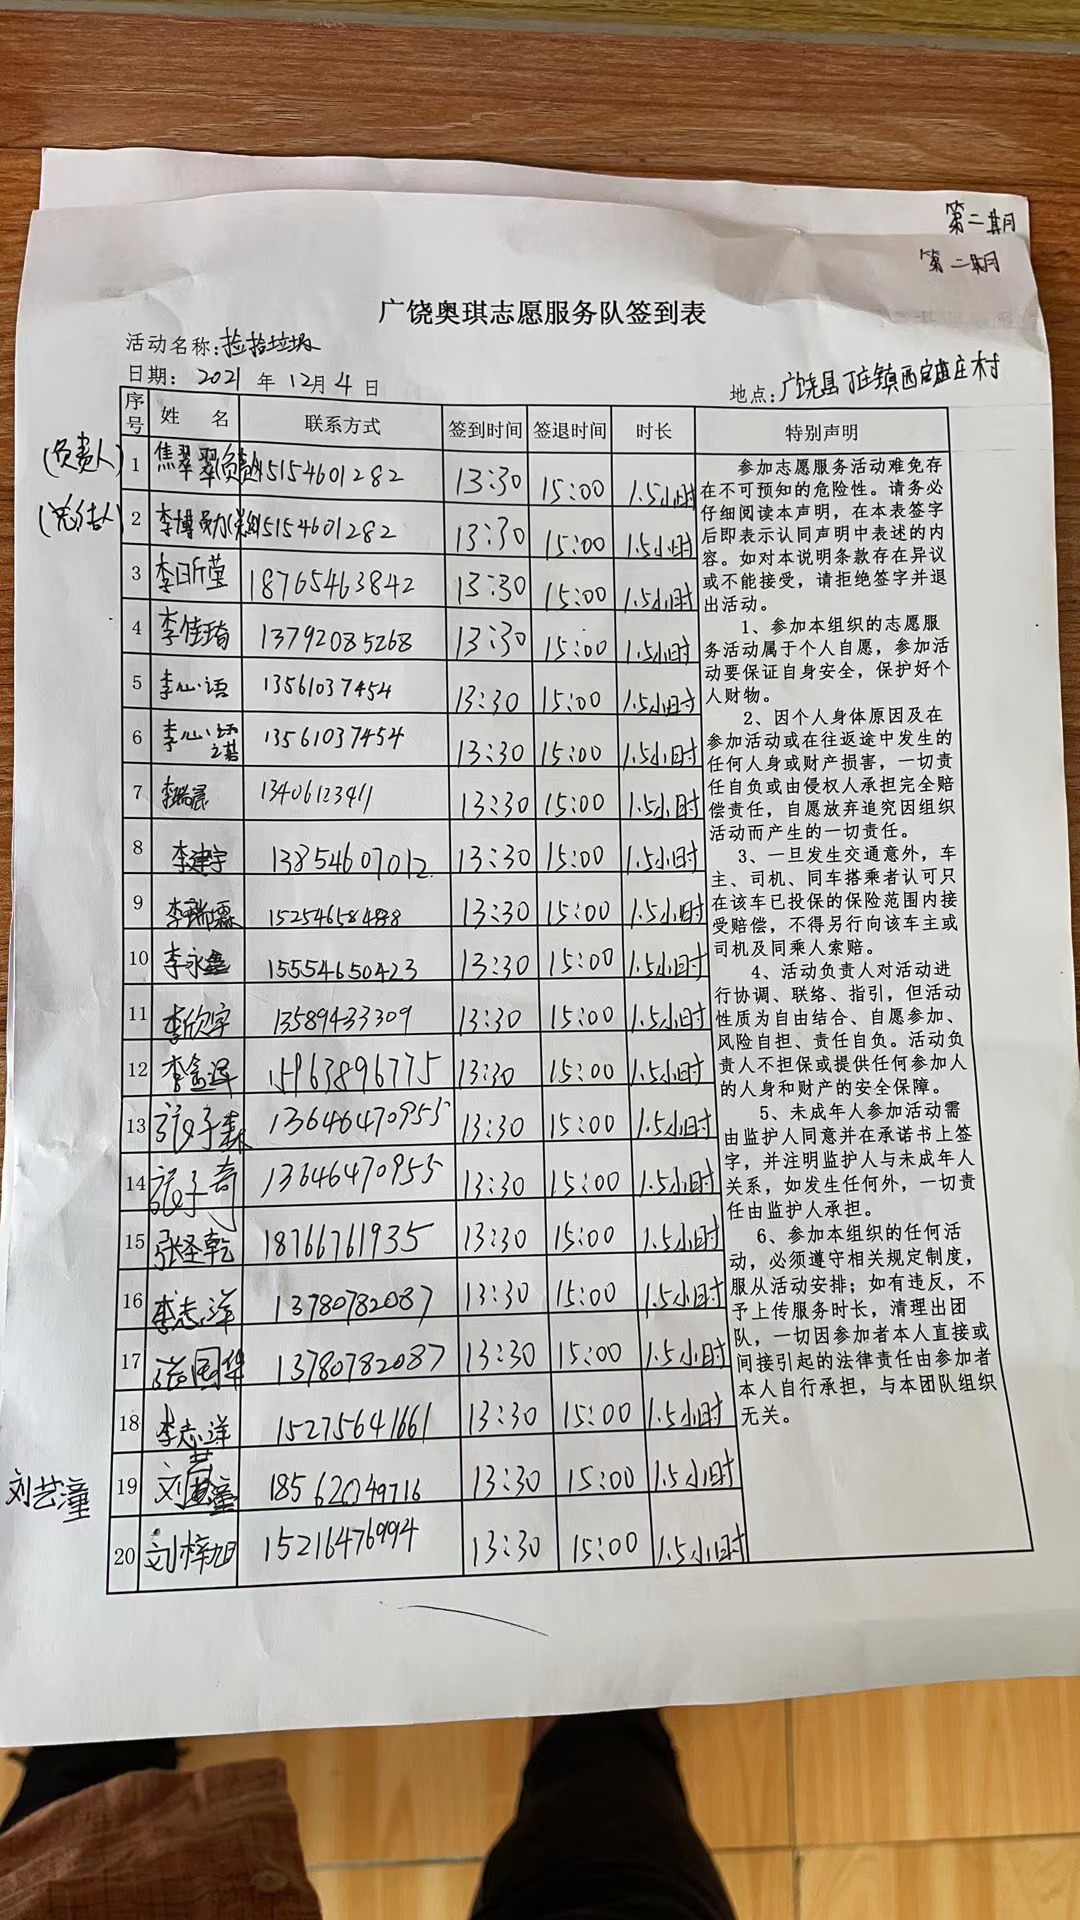 第二期
第二期
广饶奥琪志愿服务队签到表
活动名称:捡拾垃圾
日期: 2021 年 12月 4 日
地点:广饶县丁庄镇西 庄村
序号 姓 名 联系方式 签到时间 签退时间 时长 特别声明
(负责人) 1 焦翠翠(负责人) 15154601282 13:30 15:00 1.5小时
(总结人) 2 李博勇 15154601282 13:30 15:00 1.5小时
3 李昕莹 18765463842 13:30 15:00 1.5小时
4 李佳琦 13792085268 13:30 15:00 1.5小时
5 李心语 13561037454 13:30 15:00 1.5小时
6 李心 13561037454 13:30 15:00 1.5小时
7 李瑞晨 13406123411 13:30 15:00 1.5小时
8 李建宇 13854607012 13:30 15:00 1.5小时
9 李瑞霖 13:30 15:00 1.5小时
10 李永鑫 15554650423 13:30 15:00 1.5小时
11 李欣宇 13589433309 13:30 15:00 1.5小时
12 李鑫 15963896775 13:30 15:00 1.5小时
13 张子森 13646470955 13:30 15:00 1.5小时
14 张子奇 13646470955 13:30 15:00 1.5小时
15 张圣乾 18766761935 13:30 15:00 1.5小时
16 李志洋 13780782087 13:30 15:00 1.5小时
17 张国华 13780782087 13:30 15:00 1.5小时
18 李志洋 15275641661 13:30 15:00 1.5小时
刘艺潼 19 刘艺潼 18562049716 13:30 15:00 1.5小时
20 刘梓旭 15216476994 13:30 15:00 1.5小时
参加志愿服务活动难免存
在不可预知的危险性。请务必
仔细阅读本声明，在本表签字
后即表示认同声明中表述的内
容。如对本说明条款存在异议
或不能接受，请拒绝签字并退
出活动。
1、参加本组织的志愿服
务活动属于个人自愿，参加活
动要保证自身安全，保护好个
人财物。
2、因个人身体原因及在
参加活动或在往返途中发生的
任何人身或财产损害，一切责
任自负或由侵权人承担完全赔
偿责任，自愿放弃追究因组织
活动而产生的一切责任。
3、一旦发生交通意外，车
主、司机、同车搭乘者认可只
在该车已投保的保险范围内接
受赔偿，不得另行向该车主或
司机及同乘人索赔。
4、活动负责人对活动进
行协调、联络、指引，但活动
性质为自由结合、自愿参加、
风险自担、责任自负。活动负
责人不担保或提供任何参加人
的人身和财产的安全保障。
5、未成年人参加活动需
由监护人同意并在承诺书上签
字，并注明监护人与未成年人
关系，如发生任何外，一切责
任由监护人承担。
6、参加本组织的任何活
动，必须遵守相关规定制度，
服从活动安排；如有违反，不
予上传服务时长，清理出团
队，一切因参加者本人直接或
间接引起的法律责任由参加者
本人自行承担，与本团队组织
无关。